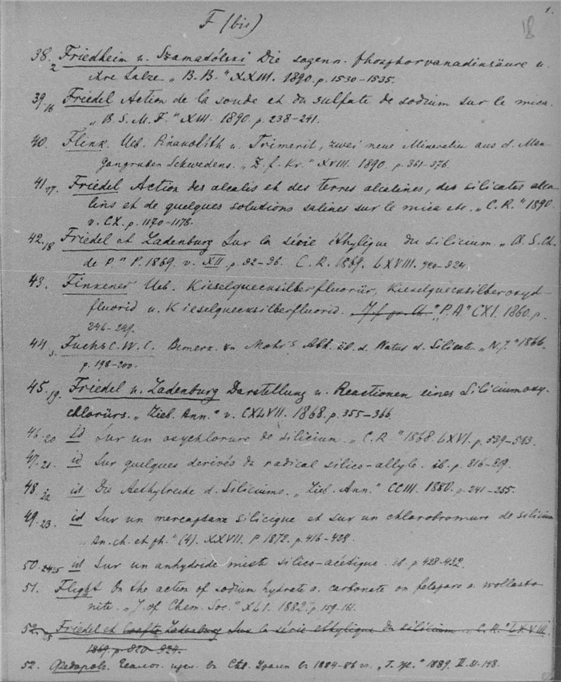 F (bis)
1.
18
38. 2 Friedheim u. Szamatólski Die sogenn. Phosphorvanadinsäure u.
ihre Salze „B. B." XXIII. 1890. p. 1530-1535.
39. 16 Friedel Action de la soude et du sulfate de sodium sur le mica.
„B. S. M. F." XIII. 1890 p. 238-241.
40. Flink. Ueb. Pinakiolith u. Trimerit, zwei neue Mineralien aus d. Man-
gangruben Schwedens. „Z. f. Kr." XVIII. 1890. p. 361-376.
41. 17. Friedel Action des alcalis et des terres alcalines, des silicates alca-
lins et de quelques solutions salines sur le mica etc. „C. R." 1890
v. CX. p. 1170-1178.
42. 18 Friedel et Ladenburg Sur la série éthylique du silicium „A. S. Ch.
de P." P. 1869. v. XII. p. 92-96. C. R. 1869. LXVIII. 920-924.
43. Finkener Ueb. Kieselquecksilberfluorür, Kieselquecksilberoxyd-
fluorid u. Kieselquecksilberfluorid. „P. A" CXI. 1860. p.
246-249.
44. Fuchs C. W. C. Bemerk. zu Mohr's Abd. üb. d. Natur d. Silicate „N. J." 1866.
p. 198-200.
45. 19. Friedel u. Ladenburg Darstellung u. Reactionen eines Siliciumoxy-
chlorürs. „Lieb. Ann." v. CXLVII. 1868. p. 355-366
46. 20 id Sur un oxychlorure de silicium. „C. R." 1868. LXVI. p. 539-543.
47. 21. id Sur quelques derivés de radical silico-allyle. ib. p. 816-819.
48. 22 id Die Aethylreihe d. Siliciums. „Lieb. Ann." CCIII. 1880. p. 241-255.
49. 23. id Sur un mercaptane silicique et sur un chlorobromure de silicium
„An. ch. et ph." (4). XXVII. P. 1872. p. 416-428.
50. id Sur un anhydride mixte silico-acétique. ib. p. 428-432.
51. Flight On the action of sodium hydrate a. carbonate on felspars a. wollasto-
nite. „J. of Chem. Soc." XLI. 1882. p. 159-161.
52. Friedel et Crafts Ladenburg Sur la série éthylique du silicium. „C. R." LXVIII.
1869. p. 920-924.
52. Геолог. изсл. в 1884-86 „Т. " 1889. II.